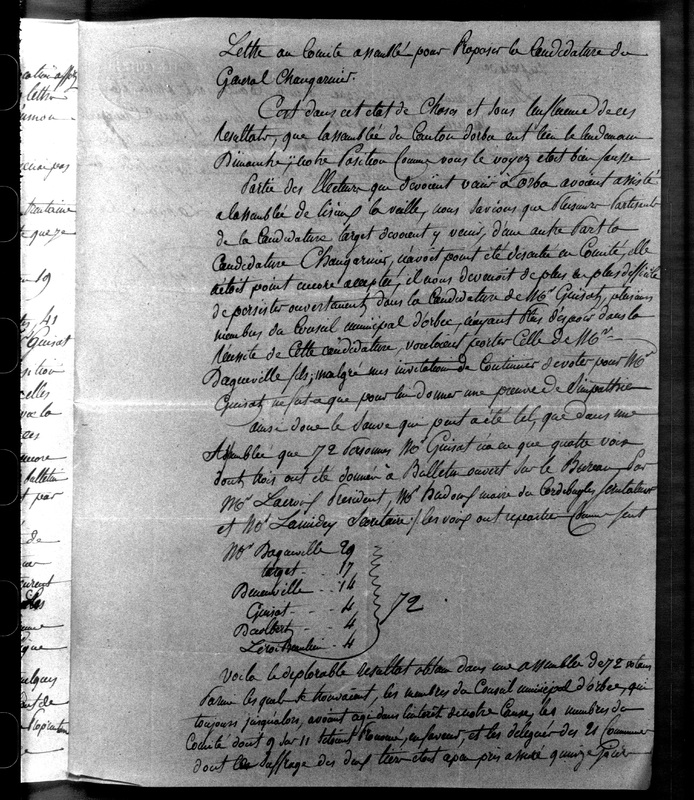 Lettre au Comité assemblé pour Reposer la Candidature du
General Changarnier.
C'est dans cet etat de Choses et sous l'influence de ces
resultats, que l'assemblée du Canton d'orbec eut lieu le lendemain
Dimanche; notre Position Comme vous le voyez etoit bien fausse
Partie des Electeurs qui devoient venir à Lorbec avoient assisté
a l'assemblée de la veille, nous savions que Plusieurs Partisants
de la Candidature target devoient y venir, d'une autre Part la
Candidature Changarnier, n'avoit point été discutée en Comité, elle
n'etoit point encore acceptée, il nous devenoit de plus en plus difficile
de persister ouvertement dans la Candidature de Mr Guisot, plusieurs
membres du Conseil municipal d'orbec, n'ayant Plus d'espoir dans la
Réussite de Cette candidature, vouloient porter Celle de Mr
Bagneville fils; malgré mes invitations de Continuer de voter pour Mr
Guisot, ne fut ce que pour lui donner une preuve de Simpathie
aussi donc le Sauve qui peut a été tel, que dans une
Assemblée que 72 Personnes Mr Guisot n'a eu que quatre voix
dont trois ont été données à Bulletin ouvert sur le Bureau, Par
Mr Lacroix President, Mr Budoux maire de Cordebugles, Scrutateur
et Mr Lamidey Secretaire / les voix ont reparties Comme suit
Mr Bagneville 29
target - - 17
Beneuville - - 14
Guisot - - - 4
Daulbert - - 4
Leroi Beaulieu - 4
72
Voila le deplorable resultat obtenu dans une assemblée de 72 votans
Parmi lesquels se trouvaient, les membres du Conseil municipal d'orbec, qui
toujours jusqu'alors, avoient agi dans l'interet de notre Cause, les membres du
Comité dont 9 sur 11 s'etoient Prononcé, en faveur, et les delegués des 21 Communes
dont les Suffrages des deux tiers etoit a peu près assuré quinze jours